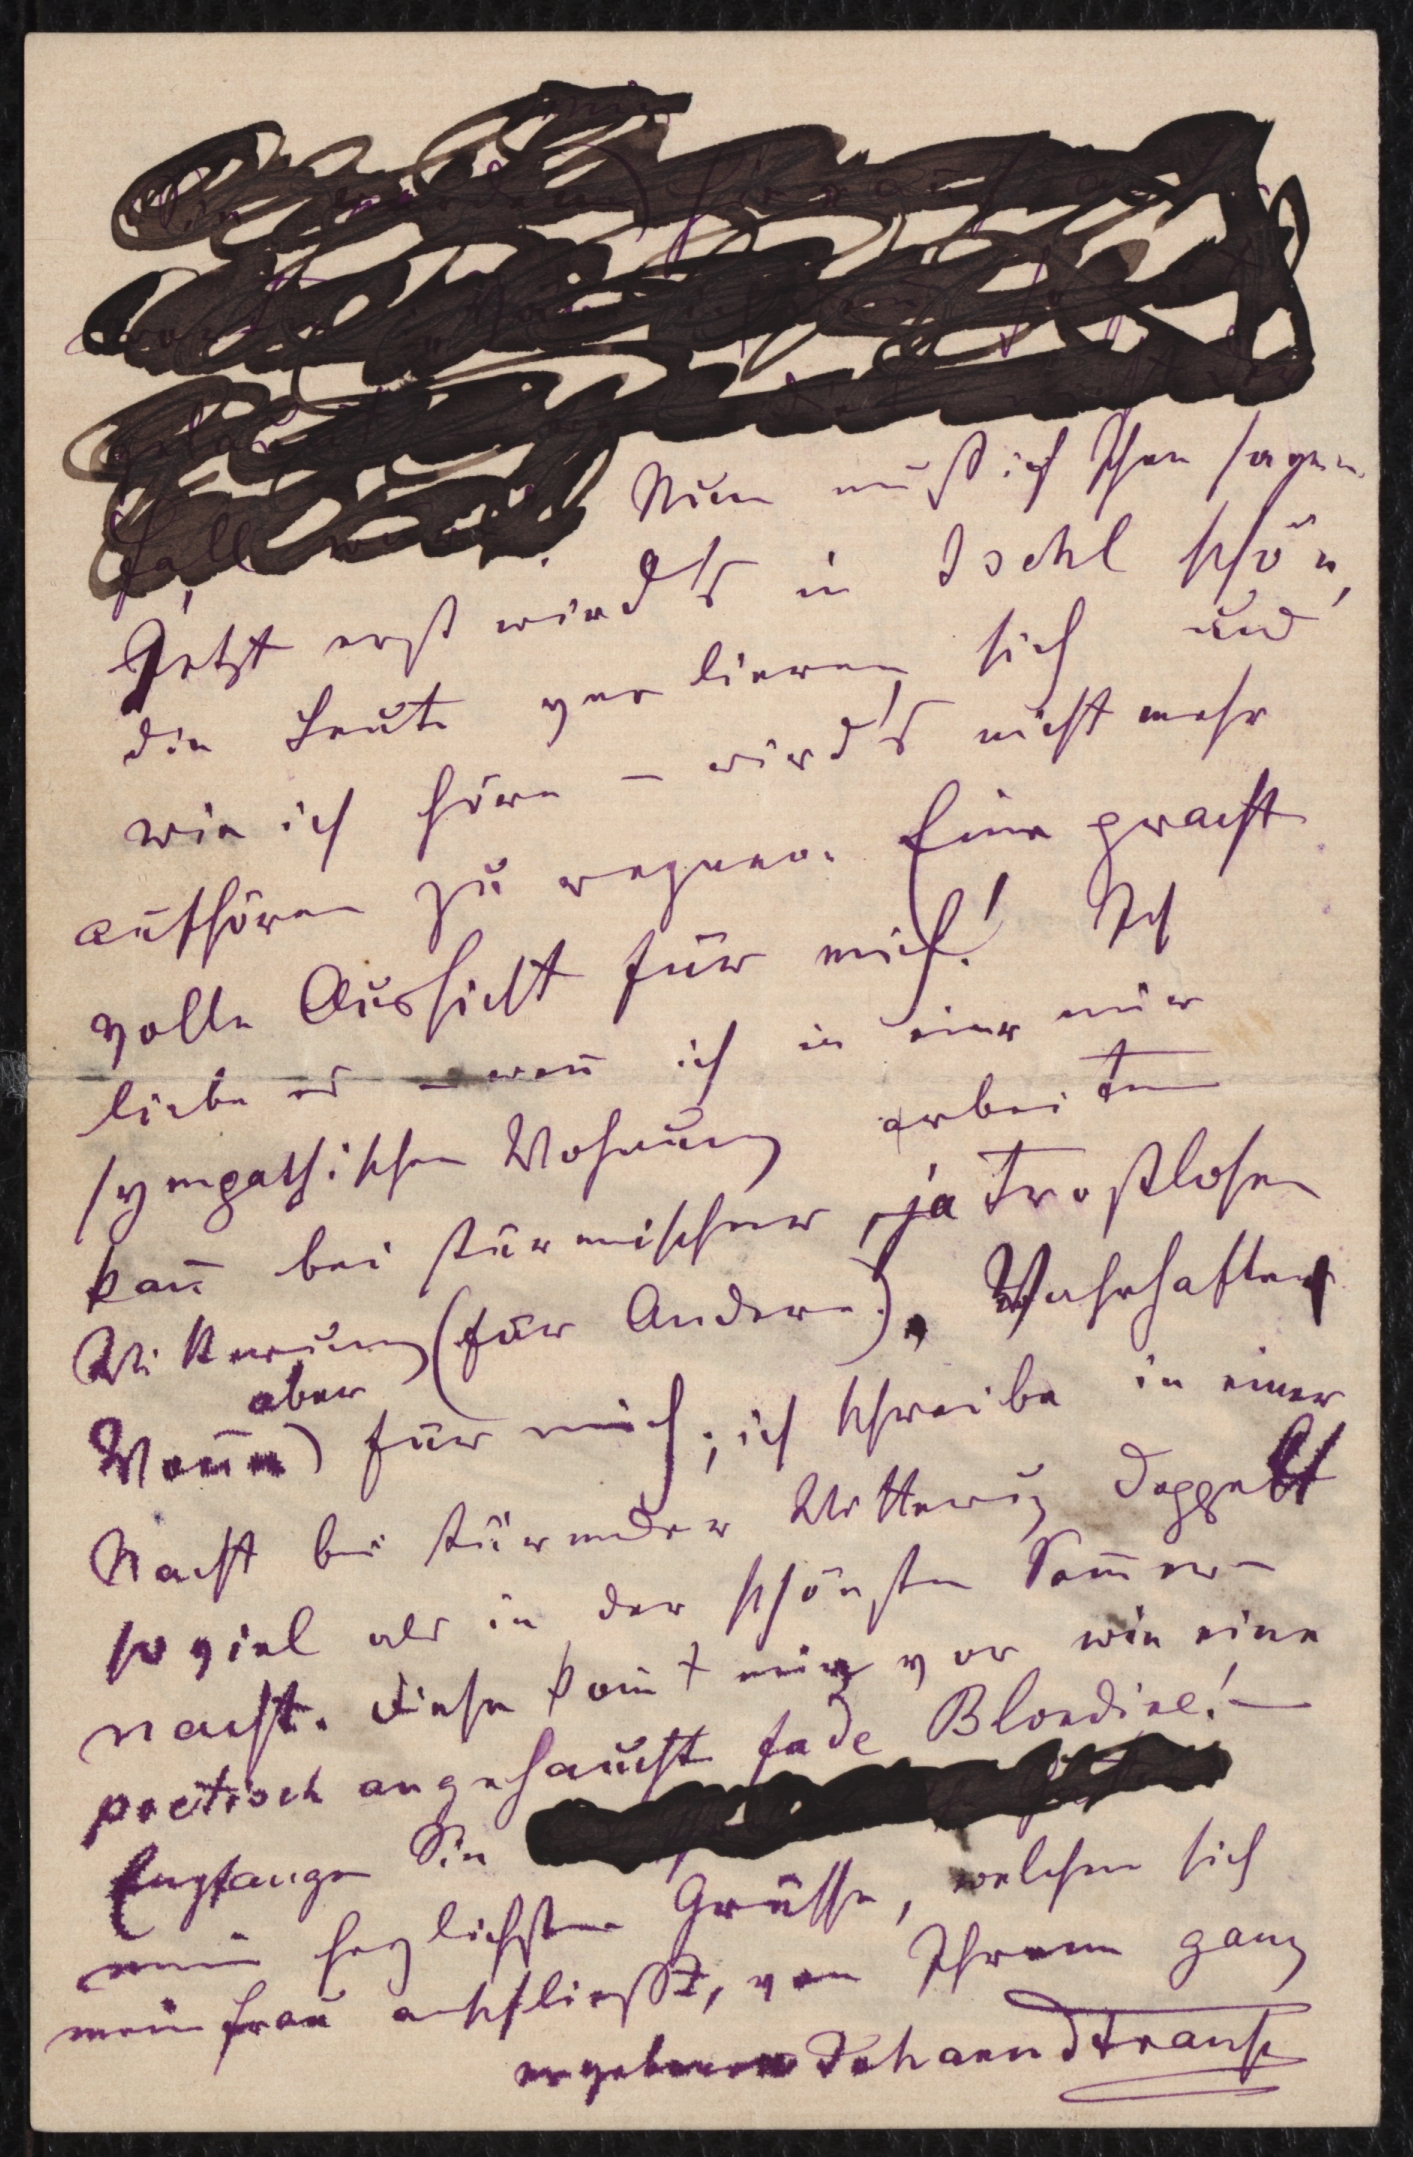 Nun muß ich Ihnen sagen
Jetzt erst wird's in Ischl schön,
die Leute verlieren sich und
wie ich höre – wird's nicht mehr
aufhören zu regnen. Eine pracht
volle Aussicht für mich! Ich
liebe es – wen̄ ich in einer mir
sympathischen Wohnung arbeiten
kan̄ bei stürmischer, ja trostlosen
Witterung (für Andere).
aber
für mich; ich schreibe in einer
Nacht bei stürmender Witterung doppelt
so viel als in der schönsten Som̄er-
nacht. Diese kom̄t mir vor wie eine
poetisch angehauchte fade Blondine! –
Empfangen Sie
meine herzlichsten Grüsse, welchen sich
meine Frau anschließt, von Ihrem ganz
ergebenen Johann Strauss